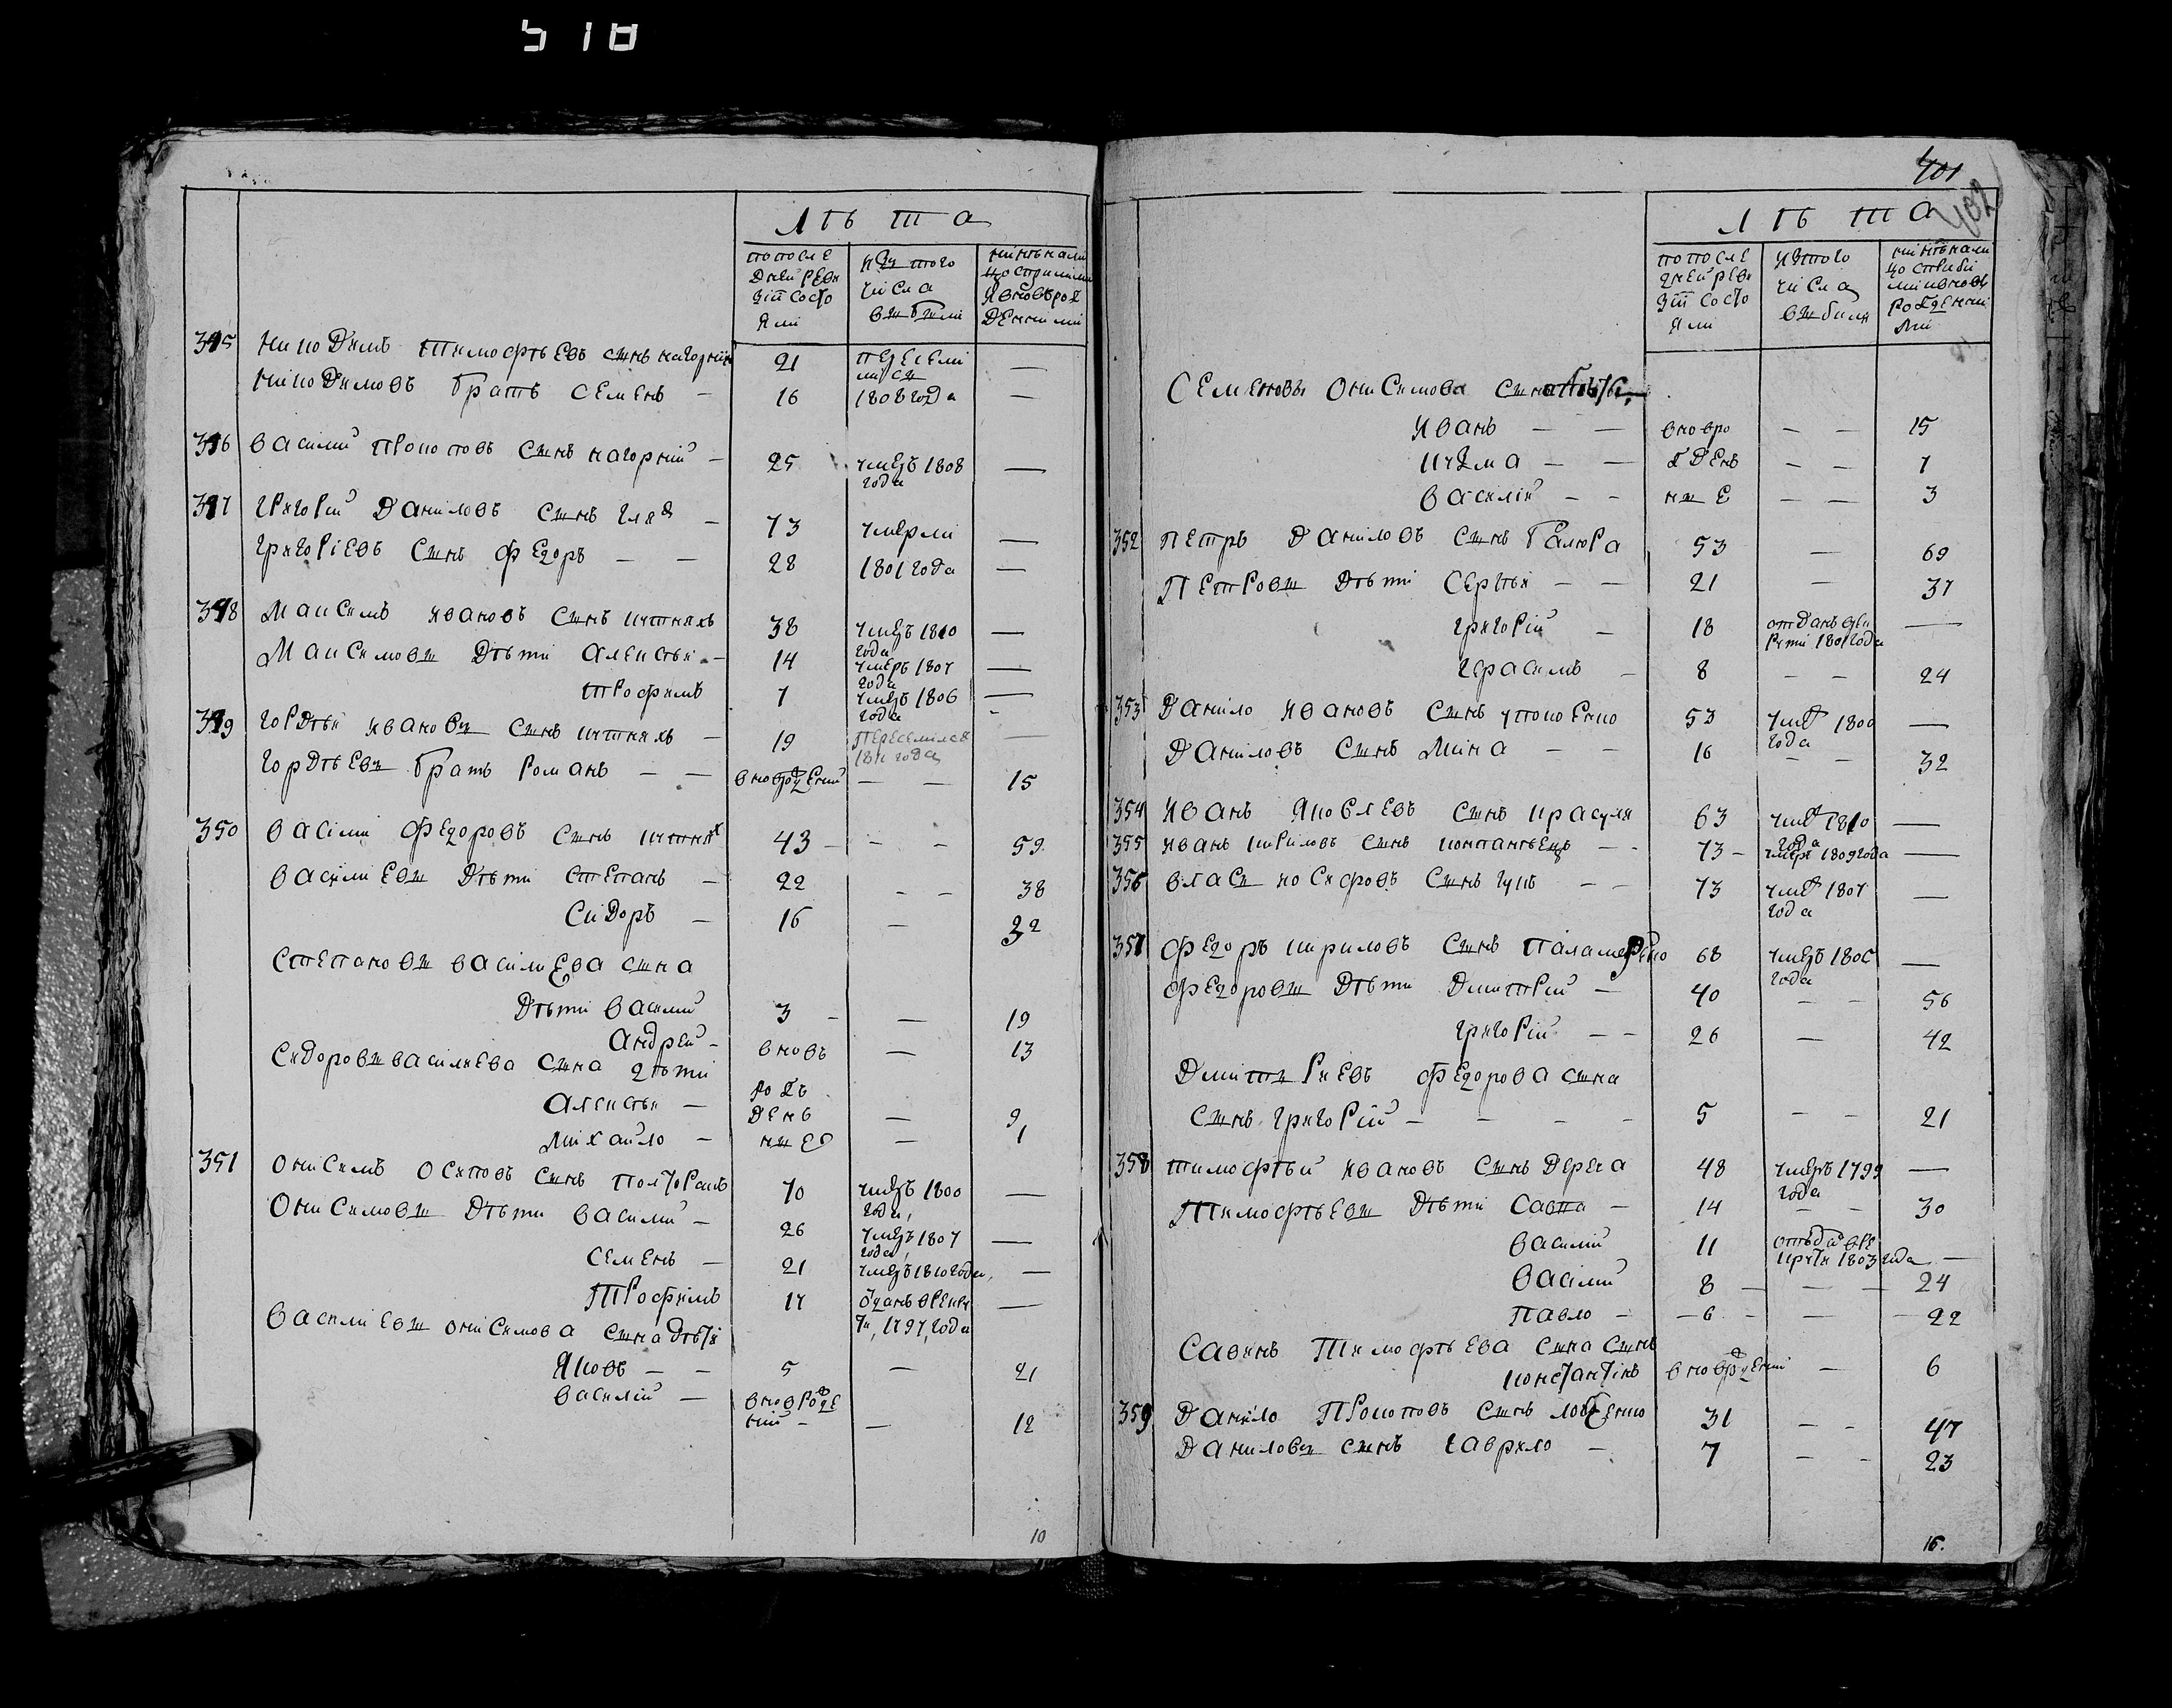 518
Лѣта
по после
дней реви
зіи состо
яли
изъ того
числа
выбыли
ныне на ли
цо с прибылыми
и вновь рож
денными
345 Никодимъ Тимофѣевъ сынъ Нагорній 21 переселі
лись —
Никодимовъ братъ Семенъ — 16 1808 года —
346 Василій Прокоповъ сынъ Нагорній — 25 умеръ 1808
года —
347 Григорій Даниловъ сынъ — 73 умерли —
Григоріевъ сынъ Федоръ — — 28 1801 года —
348 Максимъ Ивановъ сынъ 38 умеръ 1810
года —
Максимовы дѣти Алексѣй — 14 умеръ 1807
года —
Трофимъ 7 умеръ 1806
года —
349 Гордѣй Ивановъ сынъ — 19 переселился
1811 года —
Гордѣевъ братъ Романъ — — вноврожденній — — 15
350 Василій Федоровъ сынъ 43 — — — 59
Василиевы дѣти Степанъ — 22 — — 38
Сидоръ — 16 — 32
Степановы Василиева сына
дѣти Василій 3 — — 19
Андрей — вновь — 13
Сидоровы Василиева сына дѣти
Алексѣй — рож
денъ — 9
Михайло — ные — 1
351 Онисимъ Осиповъ сынъ Полторакъ 70 умеръ 1800
года —
Онисимовы дѣти Василий — 26 умеръ 1807
года —
Семенъ — 21 умеръ 1810 года —
Трофимъ 17 оданъ в рекру
ти 1797 года —
Василиевы Онисимова сына дѣти
Яковъ — — 5 — 21
Василій — вноврожде
ній — — 12
10
401
402
Лѣта
по после
дней реви
зіи состо
яли
изъ того
числа
выбыли
ныне на ли
цо с прибы
лими и вновь
рожденни
ми
Семеновы Онисимова сына дѣти
Иванъ — — вновро — — 15
— — жденъ — — 7
Василій — — ные — — 3
352 Петръ Даниловъ сынъ Галюра 53 — 69
Петровы дѣти Сергѣй — — 21 — 37
Григорій — 18 отданъ в рек
рути 1801 года —
Герасимъ — 8 — — 24
353 Данило Ивановъ сынъ 53 умер 1800
года —
Даниловъ сынъ Мина — — 16 — — 32
354 Иванъ Яковлевъ сынъ Красуля 63 умер 1810
года —
355 Иванъ Кириловъ сынъ — — 73 — умеръ 1809 года —
356 Власъ сынъ Гукъ — — 73 умер 1807
года —
357 Федоръ Кириловъ сынъ Паламаренко 68 умеръ 1805
года —
Федоровы дѣти Дмитрій — 40 — — 56
Григорій — — 26 — 42
Дмитриевъ Федорова сына
сынъ Григорій — — — — 5 — — 21
358 Тимофѣй Ивановъ сынъ Дерега 48 умеръ 1799
года —
Тимофѣевы дѣти Савва — 14 — — 30
Василій 11 отъдан в ре
крути 1803 года —
Василій 8 — — — 24
Павло — — 6 — — — 22
Савинъ Тимофѣева сына сынъ
Константинъ вноврожденій — 6
359 Данило Прокоповъ сынъ 31 — — 47
Даниловъ сынъ Гаврило — 7 — — 23
15.